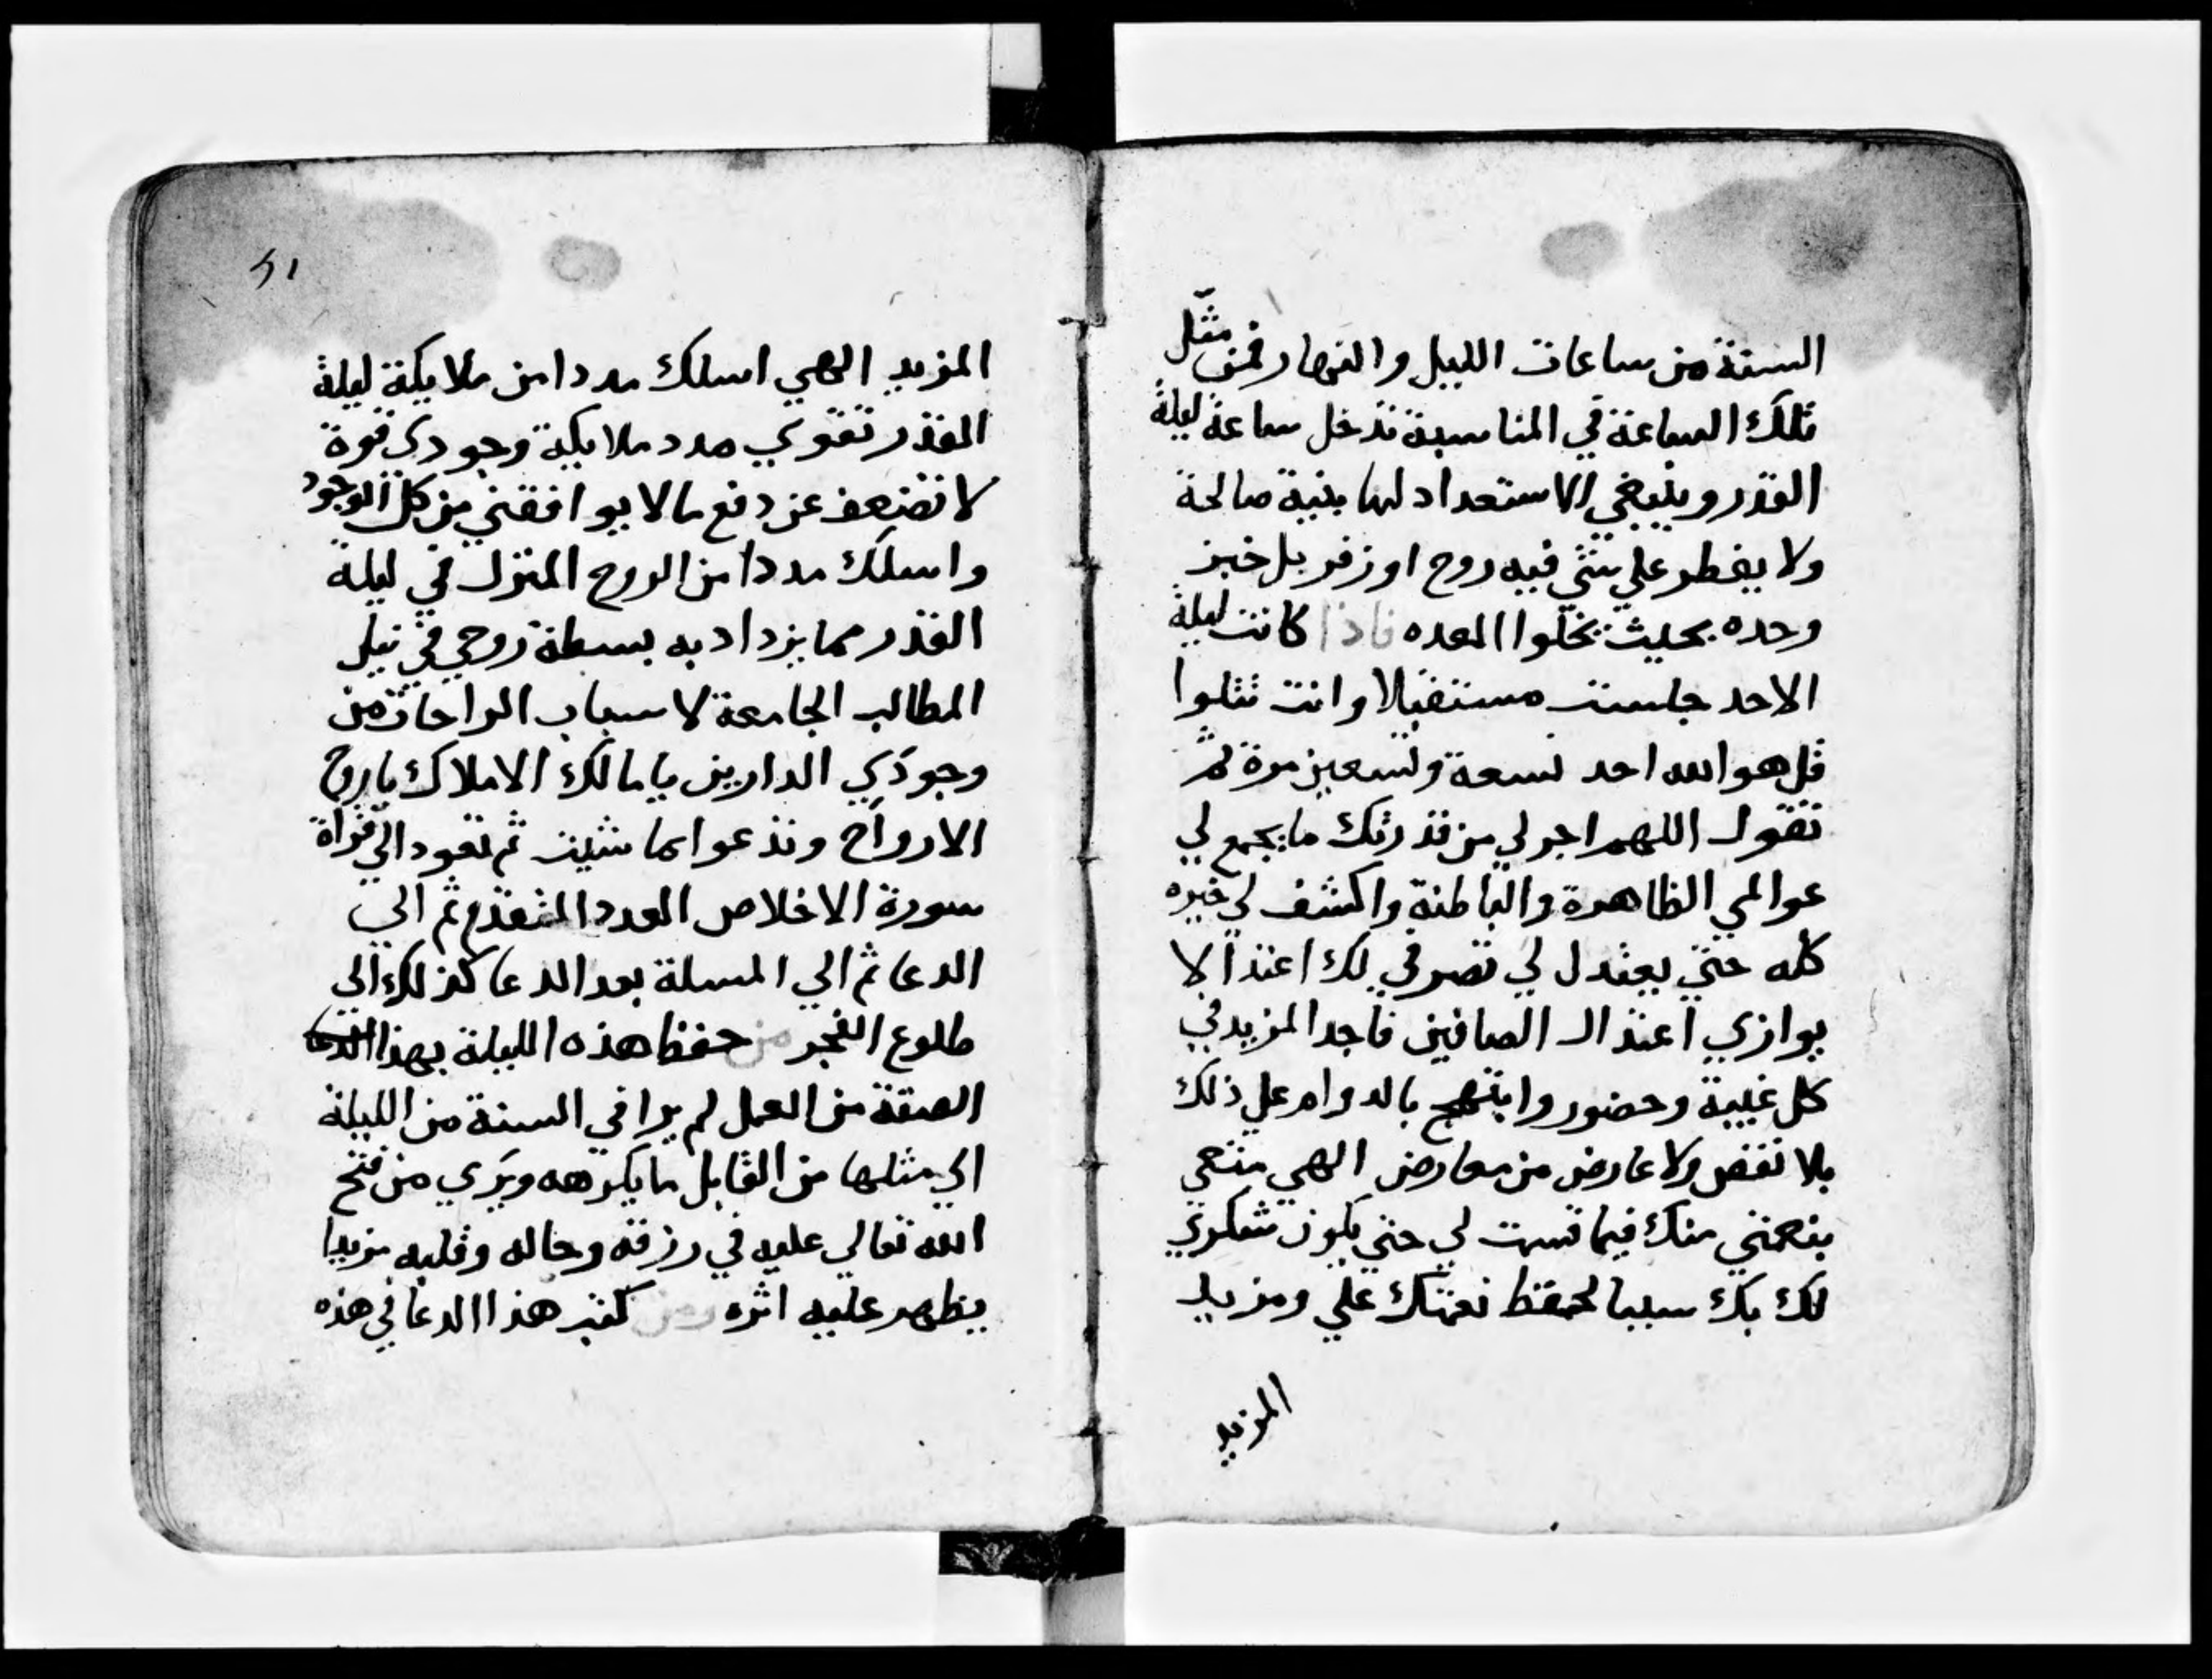 الستة من ساعات الليل والنهار فمن مثل
تلك الساعة في المناسبة تدخل ساعة ليلة
القدر وينبغي الاستعداد لها بنية صالحة
ولا يفطر علي شي فيه روح او زفر بل خبز
وحده بحيث تخلوا المعده فاذا كانت ليلة
الاحد جلست مستقبلا وانت تتلوا
قل هو الله احد تسعة وتسعين مرة ثم
تقول اللهم اجر لي من قدرتك ما يجمع لي
عوالمي الظاهرة والباطنة واكشف لي خيره
كله حتي يعتدل لي تصرفي لك اعتدالا
يوازي اعتدال الصافين فاجد المزيد في
كل غيبة وحضور وابتهج بالدوام علي ذلك
بلا نقض ولا عارض من معارض الهي متعي
بنعمتي منك فيما قسمت لي حتي يكون شكري
لك بك سببا لحفظ نعمتك علي ومزيد
المزيد
٤١
المزيد الهي اسلك مددا من ملايكة ليلة
القدر تقوي مدد ملايكة وجودي قوة
لا تضعف عن دفع ما لا يوافقني من كل الوجود
واسلك مددا من الروح المنزل في ليلة
القدر مما يزداد به بسطة روحي في نيل
المطالب الجامعة لاسباب الراحات من
وجودي الدارين يا مالك الاملاك يا روح
الارواح وتدعوا بما شيت ثم تعود الي قراة
سورة الاخلاص العدد المتقدم ثم الي
الدعا ثم الي المسلة بعد الدعا كذلك الي
طلوع الفجر من حفظ هذه الليلة بهذا
الصفة من العمل لم يرا في السنة من الليلة
الي مثلها من القابل ما يكرهه ويري من فتح
الله تعالي عليه في رزقه وحاله وقلبه مزيدا
يظهر عليه اثره ومن كتب هذا الدعا في هذه